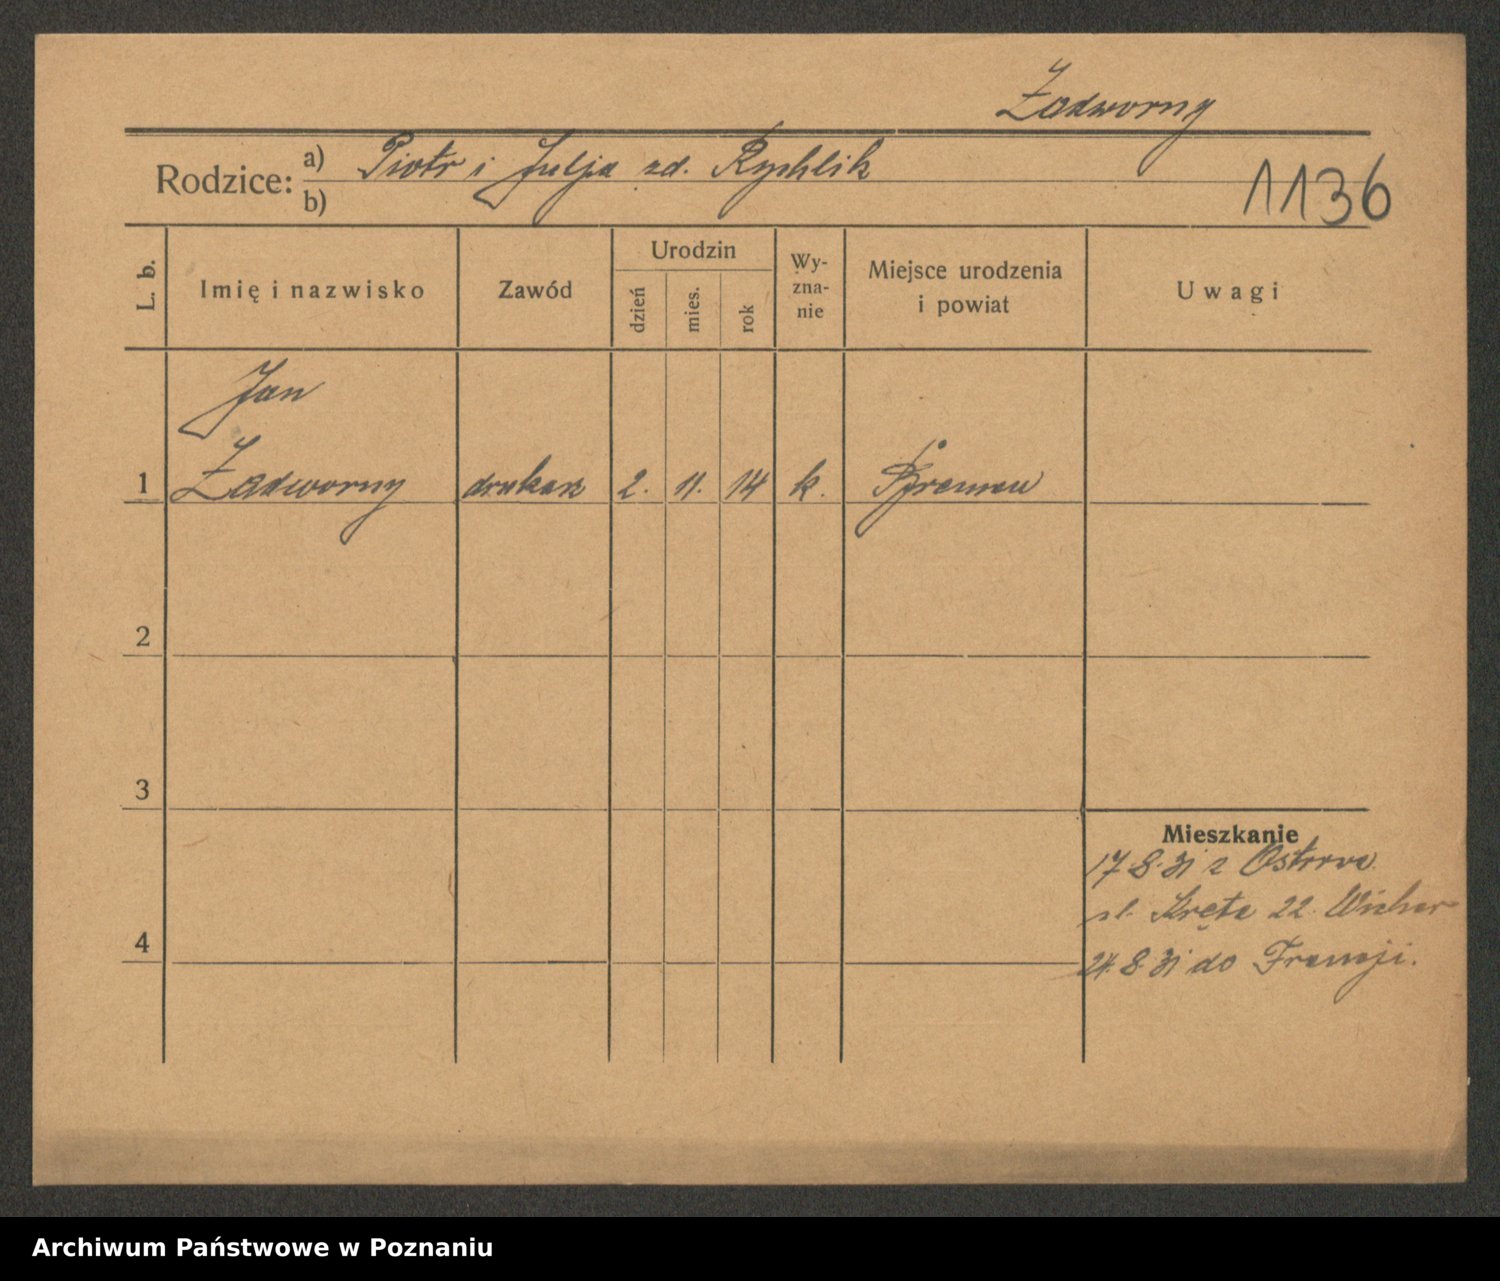 Zadworny
Rodzice: a) Piotr i Julja zd. Rychlik
b)
1136
L. b.
Imię i nazwisko
Zawód
Urodzin
dzień
mies.
rok
Wy-
zna-
nie
Miejsce urodzenia
i powiat
Uwagi
Jan
1 Zadworny drukarz 2. 11. 14 k. Bremen
2
3
Mieszkanie
17.8.31 z Ostrowa.
ul. Kręta 22. Wicher
4
24.8.31 do Francji.
Archiwum Państwowe w Poznaniu